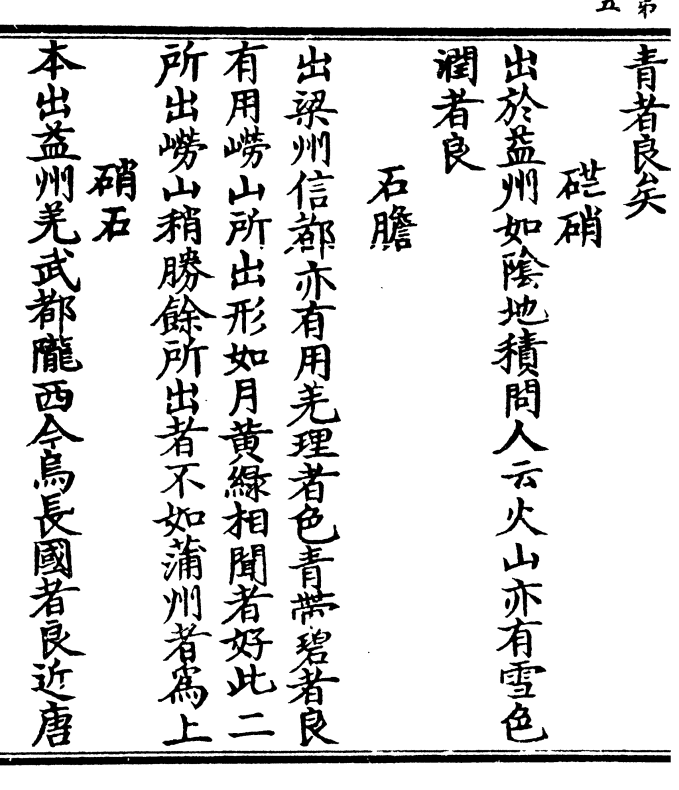 弟五
青者良矣
硭硝
出於益州如陰地積問人云火山亦有雪色
潤者良
石膽
出梁州信都亦有用羌理者色青帶碧者良
有用嶗山所出形如月黄綠相聞者好此二
所出嶗山稍勝餘所出者不如蒲州者爲上
硝石
本出益州羌武都隴西今烏長國者良近唐